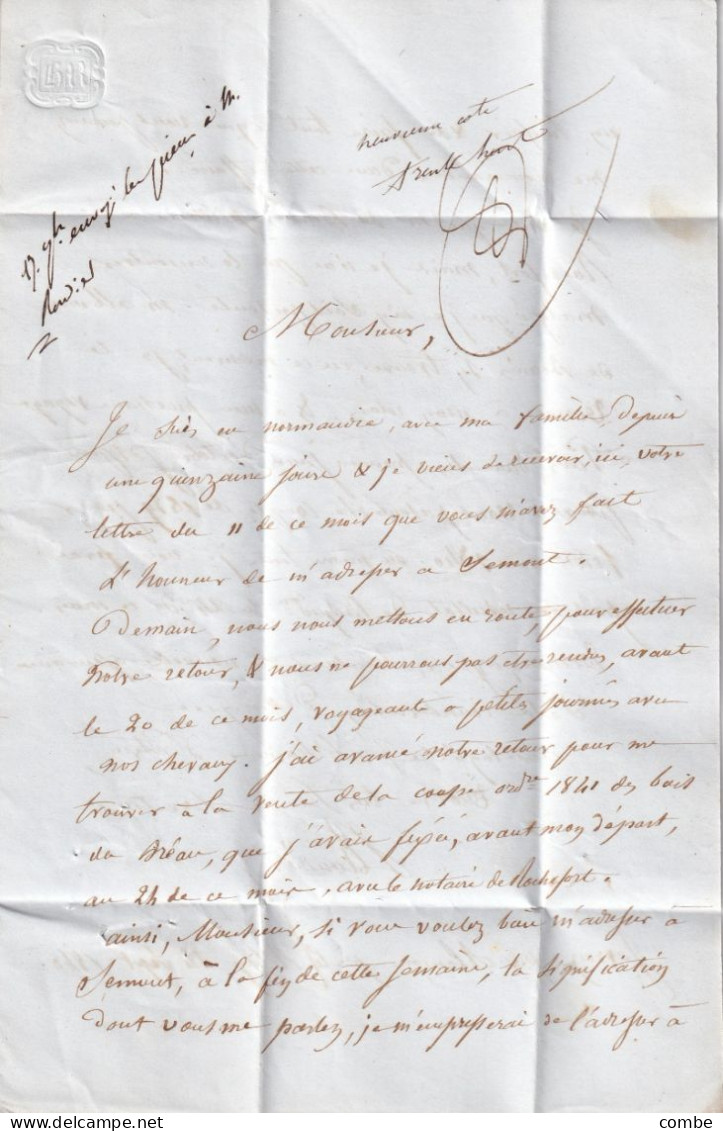 LHR
neuvieme cote
17. 9bre envoyé les pieces à M.
Monsieur,
Je suis en normandie, avec ma famille, depuis
une quinzaine jours & je viens de recevoir, ici, votre
lettre du 11 de ce mois que vous m'avez fait
L'honneur de m'adresser a Semont.
Demain, nous nous mettons en route, pour effectuer
notre retour, & nous ne pourrons pas etre rendus, avant
le 20 de ce mois, voyageants a petites journées avec
nos chevaux. j'ai avancé notre retour pour me
trouver à la vente de la coupe ordre 1841 des bois
du Bréau, que j'avais fixée, avant mon départ,
au 24 de ce mois, avec le notaire de Rochefort.
ainsi, Monsieur, si vous voulez bien m'adresser à
Semont, à la fin de cette semaine, la signification
dont vous me parlez, je m'empresserai de l'adresser à
combe